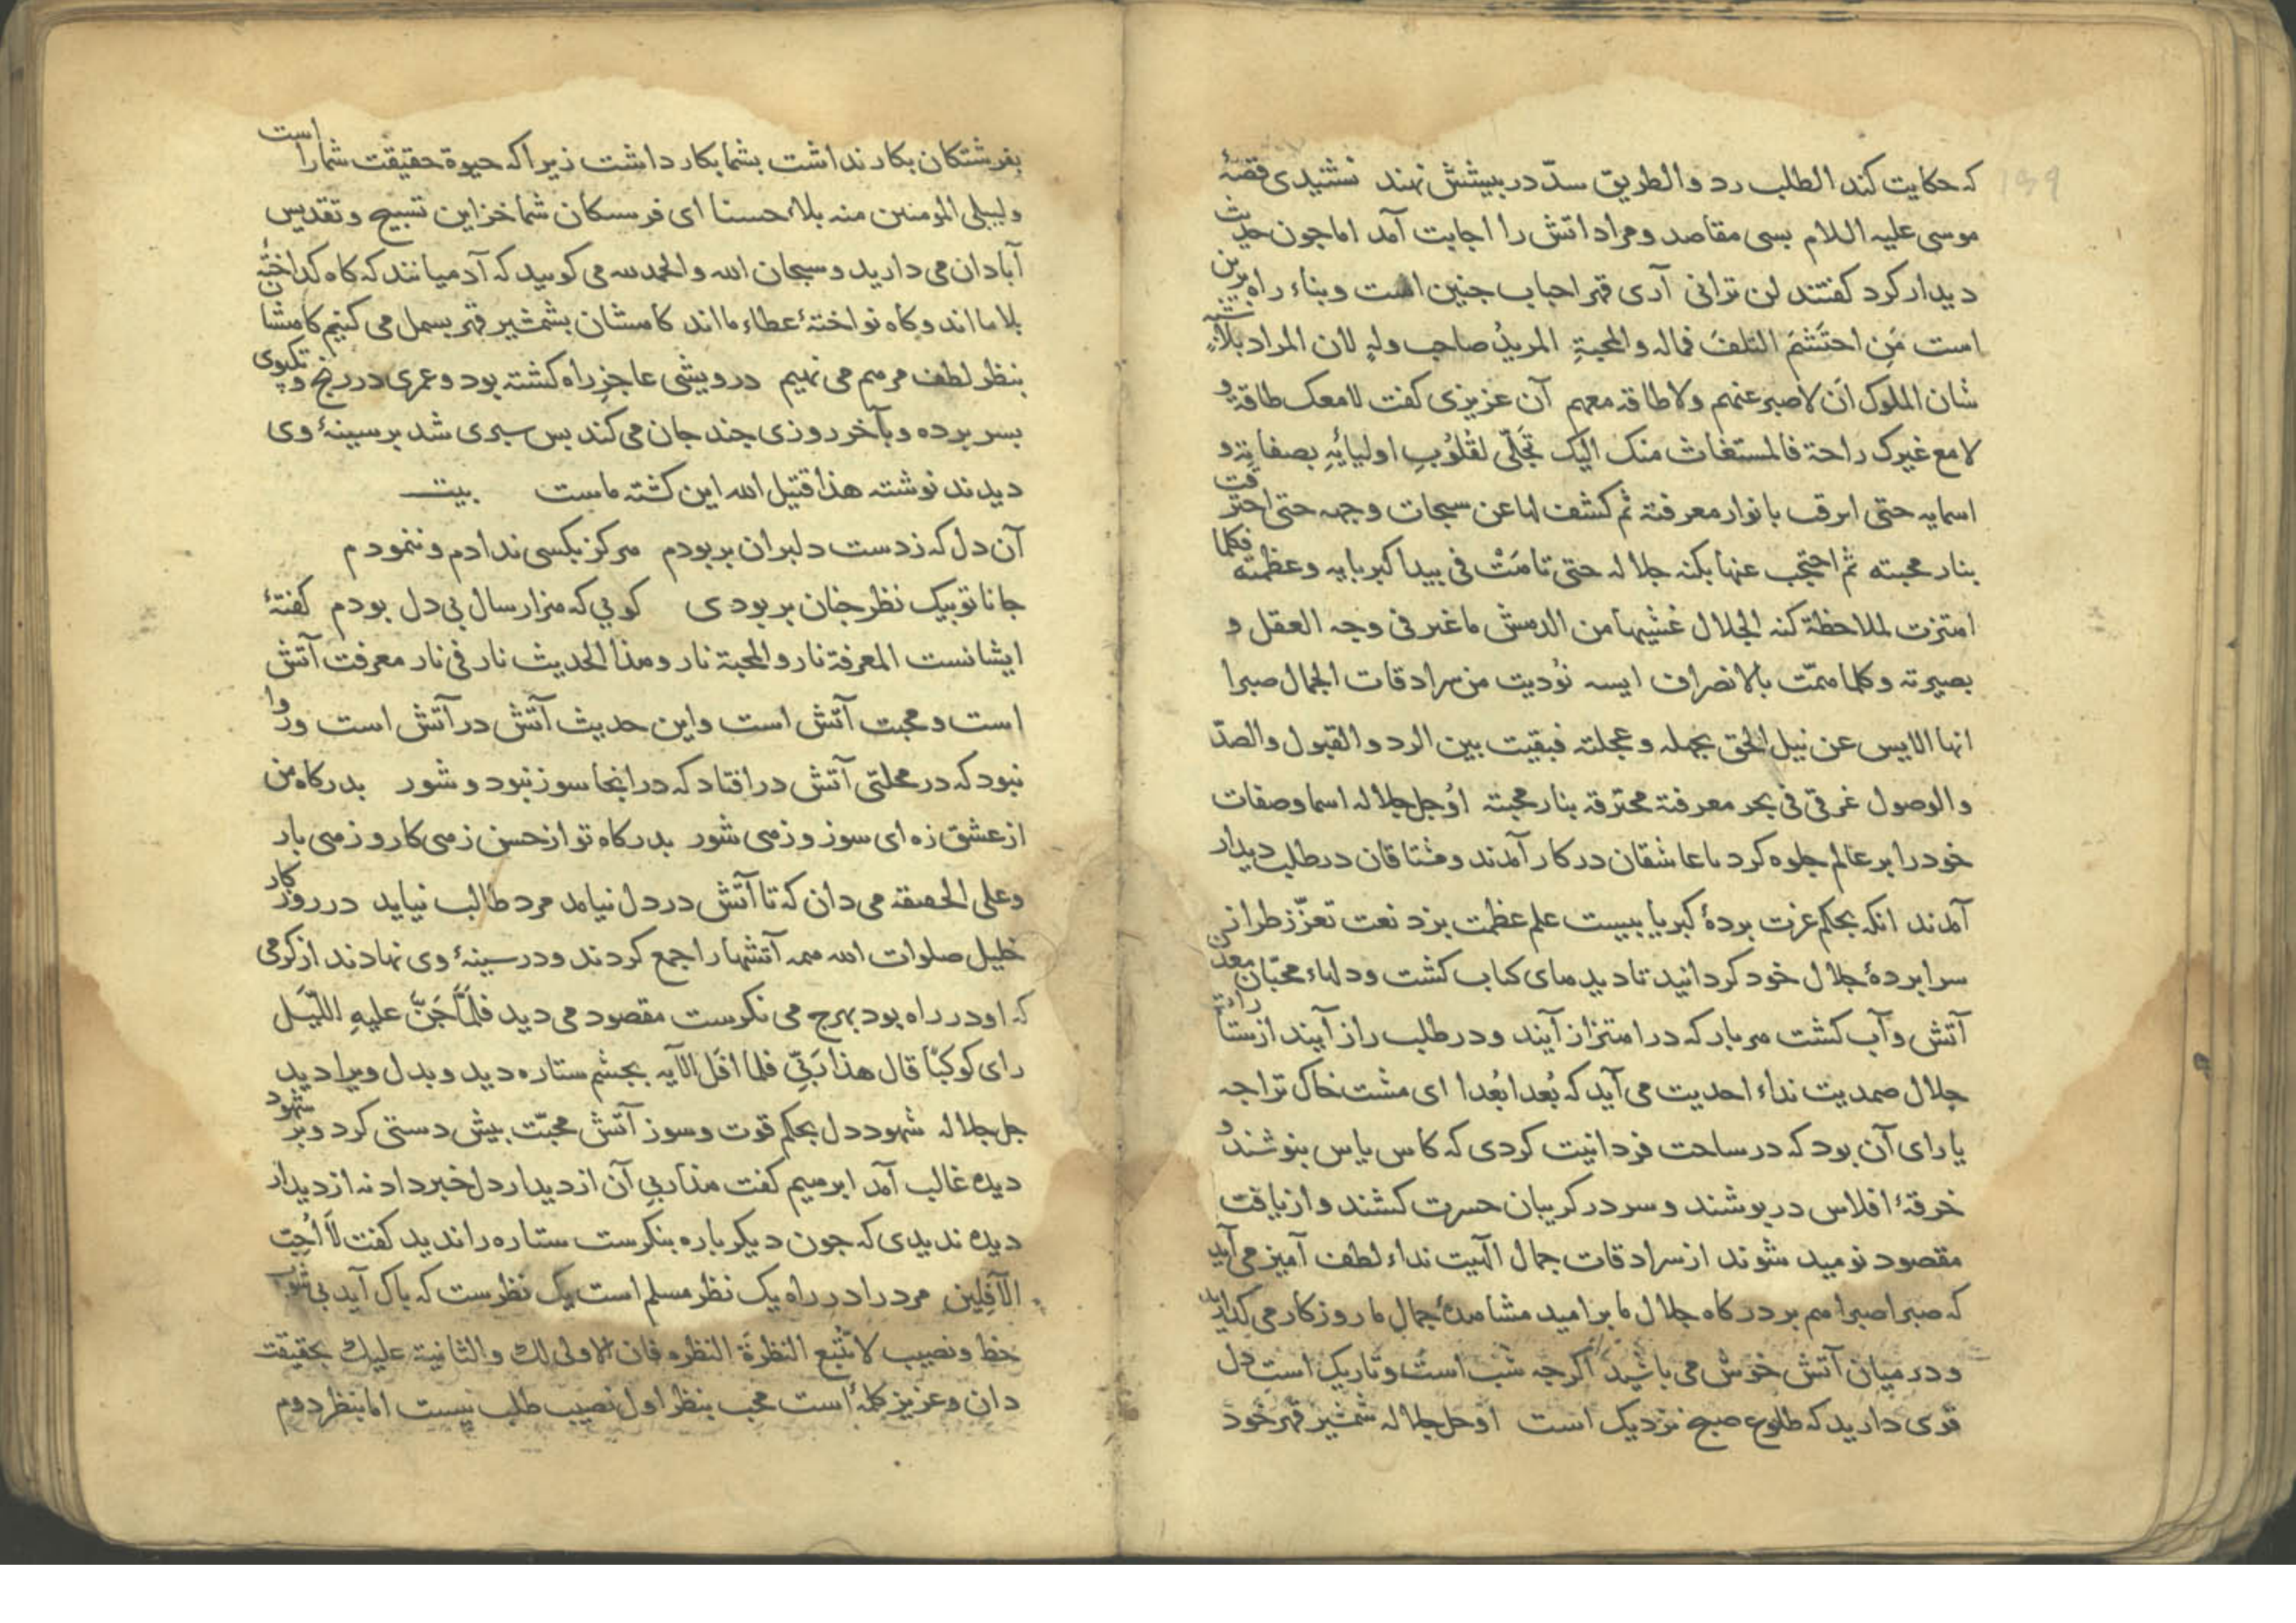 139
که حکایت کند الطلب رد والطریق سدّ در بیشش نهند نشنیدی قصهٔ
موسی علیه اللام بسی مقاصد و مراد اتش را اجابت آمد اما جون حدیث
دیدار کرد کفتند لن ترانی آری قهر احباب جنین است وبناء راه برین
است مَنِ احتَشَمَ التلفَ فماله والمحبةِ المریدُ صاحب ولهٍ لان المراد بلا
شان الملوک اَن لاصبر عنهم ولا طاقة معهم آن عزیزی کفت لامعک طاقة و
لامع غیرک راحة فالمستغاث منک الیک تجَلّی لقلُوبِ اولیائِهِ بصفاته و
اسمایه حتی ابرقت بانوار معرفتة ثم کشف لها عن سبحات وجهه حتی احترقت
بنار محبته ثم احتجب عنها بکنه جلاله حتی تامَتْ فی بیدا کبریایه وعظمته فکلما
اهتزت لملاحظة کنه الجلال غشیها من الدهش ماغبر فی وجه العقل و
بصیرته وکلما همّت بالانصراف ایسه نُودیت من سرادقات الجمال صبرا
انها الایس عن نیل الحق بجهله وعجلته فبقیت بین الرد والقبول والصدّ
والوصول غرقی فی بحر معرفتة محترقة بنار محبته اوُجل جلاله اسما وصفات
خود را بر عالم جلوه کرد تا عاشقان در کار آمدند ومشتاقان در طلب دیدار
آمدند انکه بحکم عزت بردهٔ کبریا ببیست علم عظمت بزد نعت تعزّز طراز
سرابردهٔ جلال خود کردانید تا دیدهای کباب کشت ودلهاء محبّان معدن
آتش وآب کشت هر بار که در اهتزاز آیند ودر طلب راز آیند از ستارات
جلال صمدیت نداء احدیت می آید که بُعدا بُعدا ای مشت خاک ترا جه
یارای آن بود که در ساحت فردانیت کردی که کاس یاس بنوشند و
خرقهٔ افلاس در بوشند و سر در کریبان حسرت کشند و از یافت
مقصود نومید شوند از سرادقات جمال الهیت نداء لطف آمیز می آید
که صبرا صبرا هم بر درکاه جلال ما بر امید مشاهدهٔ جمال ما روزکار می کذارید
ودر میان آتش خوش می باشید اکرجه شب است وتاریک است دل
قوی دارید که طلوع صبح نزدیک است اوجل جلاله شمشیر قهر خود
بفرشتکان بکار نداشت بشما بکار داشت زیرا که حیوة حقیقت شما را است
ولیبلی المومنین منه بلاء حسنا ای فرستکان شما خزاین تسبیح وتقدیس
آبادان می دارید وسبحان الله والحمدلله می کویید که آدمیانند که کاه کداختهٔ
بلا ما اند وکاه نواختهٔ عطاء ما اند کاهشان بشمشیر قهر بسمل می کنیم کاهشان
بنظر لطف مرهم می نهیم درویشی عاجز راه کشته بود وعمری در رنج وتکبوی
بسر برده وبآخر روزی جند جان می کند بس سبری شد بر سینهٔ وی
دیدند نوشته هذا قتیل الله این کشته ماست بیت
آن دل که زدست دلبران بربودم هرکز بکسی ندادم وننمودم
جانا تو بیک نظر جنان بربودی کویی که هزار سال بی دل بودم کفتهٔ
ایشانست المعرفة نار والمحبة نار وهذا الحدیث نار فی نار معرفت آتش
است ومحبت آتش است واین حدیث آتش در آتش است وروا
نبود که در محلتی آتش در افتاد که در انجا سوز نبود و شور بدرکاه من
از عشق زه ای سوز و زهی شور بدرکاه تو از حسن زهی کار و زهی بار
وعلی الحقیقة می دان که تا آتش در دل نیامد مرد طالب نیاید در روزکار
خلیل صلوات الله همه آتشها را جمع کردند ودر سینهٔ وی نهادند از کرمی
که او در راه بود بهرج می نکرست مقصود می دید فلَمَّا جَنَّ علیهِ اللّیَل
رای کوکبًا قال هذا رَبّیِ فلما افَل الآیه بجشم ستاره دید وبدل ویرا دید
جل جلاله شهود دل بحکم قوت وسوز آتش محبّت بیش دستی کرد وبر شهود
دیده غالب آمد ابرهیم کفت هذا ربی آن از دیدار دل خبر داد نه از دیدار
دیده ندیدی که جون دیکر باره بنکرست ستاره را ندید کفت لَا اُحِبّ
الآفِلینَ مرد را در راه یک نظر مسلم است یک نظرست که باک آید بی شوب
حظ ونصیب لاتتبع النظرةَ النظره فان الاولی لك والثانیة علیك بحقیقت
دان وعزیز کلمهٔ است محب بنظر اول نصیب طلب نیست اما بنظر دوم